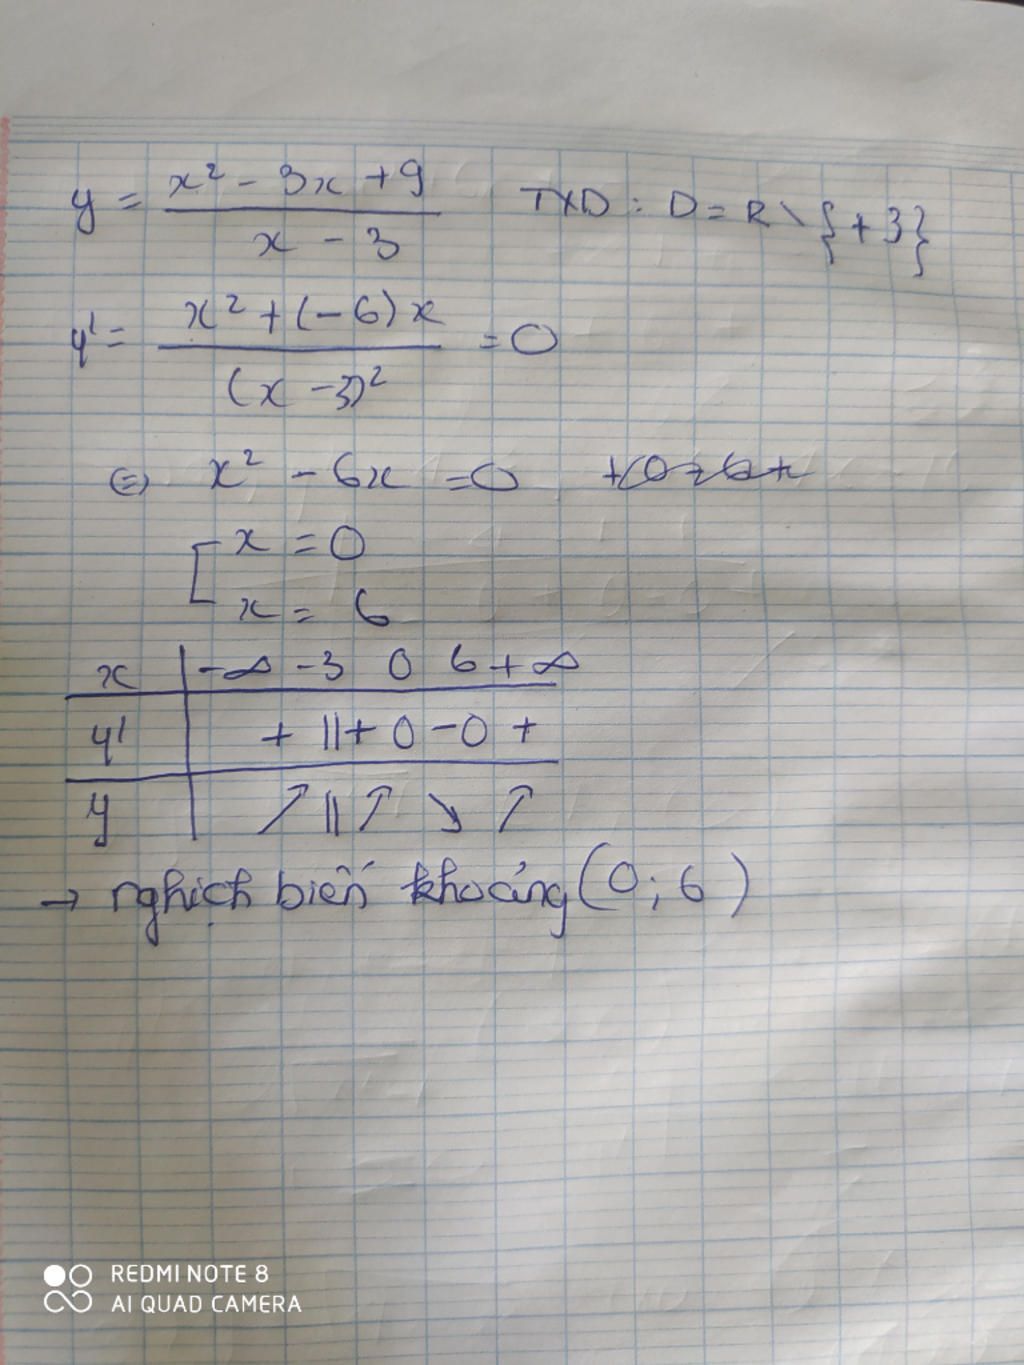 y = (x² - 3x + 9)/(x - 3) TXD : D = R \ {+3}
y' = (x² + (-6)x)/(x - 3)² = 0
⇔ x² - 6x = 0
[ x = 0
x = 6
x | -∞ -3 0 6 +∞
y' | + || + 0 - 0 +
y | ↗ || ↗ ↘ ↗
→ nghịch biến khoảng (0; 6)
REDMI NOTE 8
AI QUAD CAMERA